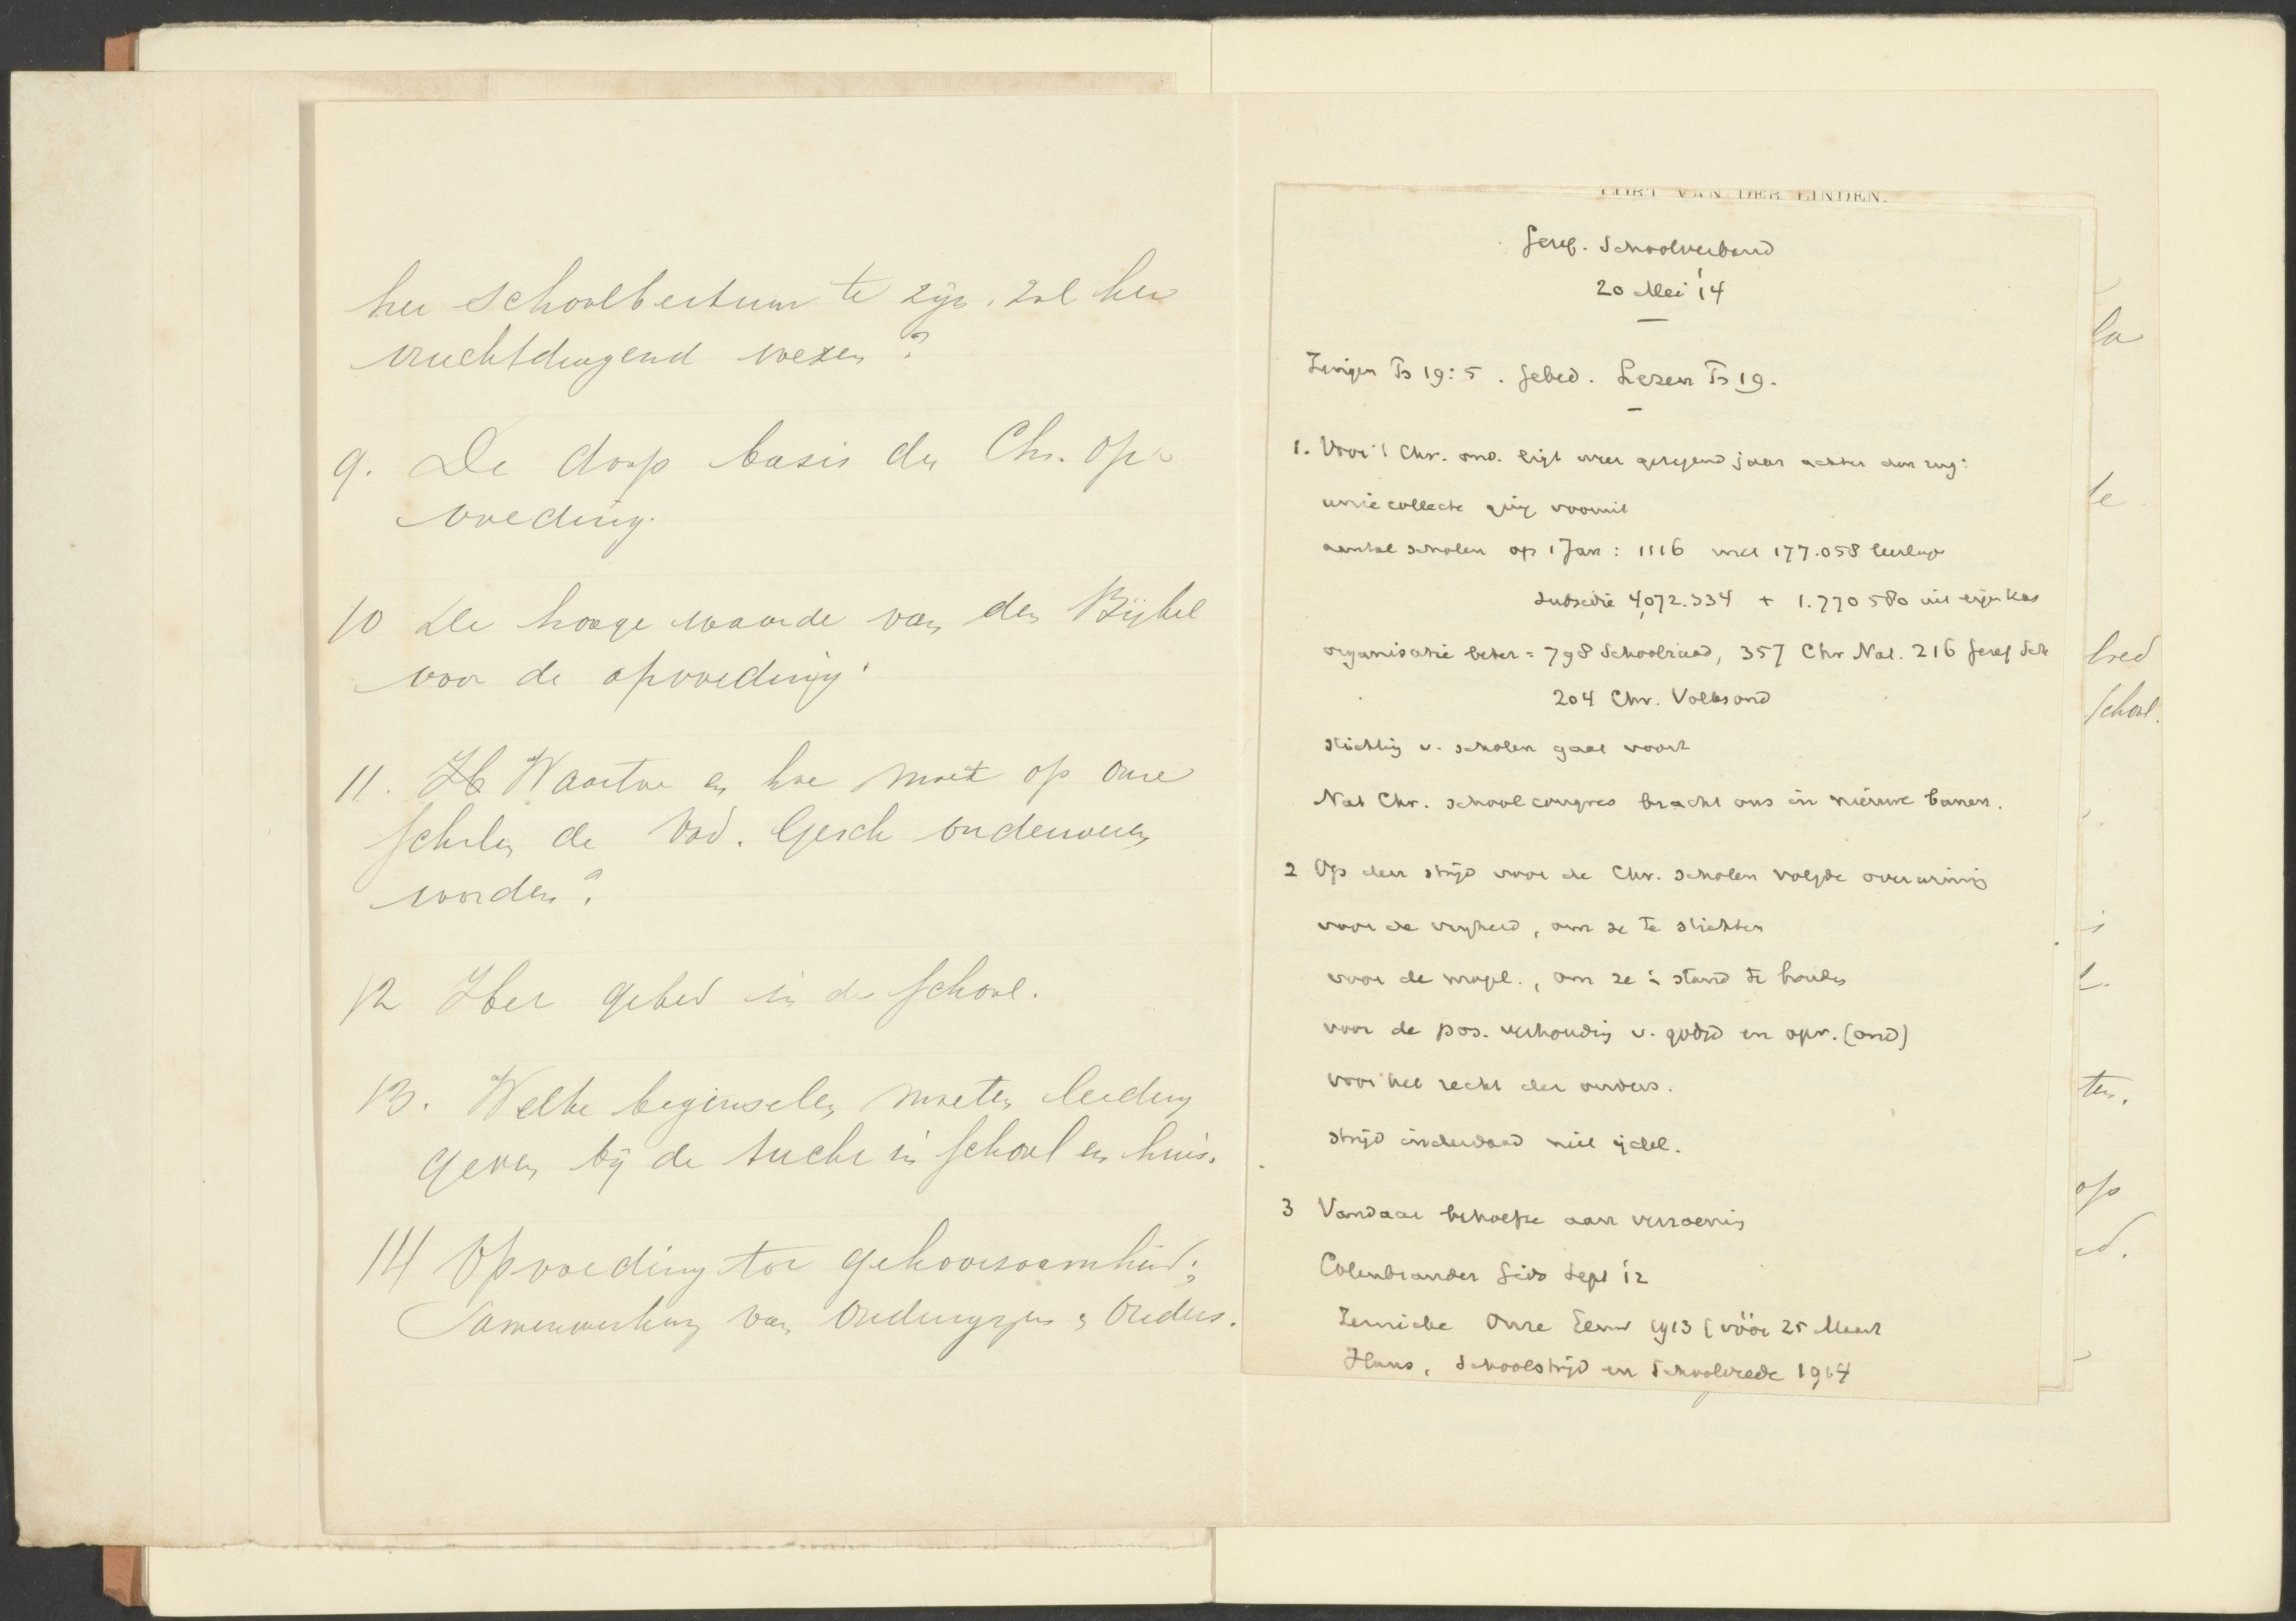 het schoolbestuur te zijn, zal het
vruchtdragend wezen?
9. De doop basis der Chr. op-
voeding.
10 De hooge waarde van den Bijbel
voor de opvoeding.
11. H Waartoe en hoe moet op onze
scholen de Vad. Gesch onderwezen
worden?
12 Het gebed in de school.
13. Welke beginselen moeten leiding
geven bij de tucht in school en huis.
14 Opvoeding tot gehoorzaamheid;
Samenwerking van Onderwijzers & Ouders.
CORT VAN DER LINDEN.
Geref. Schoolverband
20 Mei '14
Zingen Ps 19:5. Gebed. Lezen Ps 19.
1. Voor 't Chr. ond. ligt weer gezegend jaar achter den rug:
uniecollecte ging vooruit
aantal scholen op 1 Jan: 1116 met 177.058 leerlingen
subsidie 4,072.334 + 1.770 580 uit eigen kas
organisatie beter = 798 Schoolraad, 357 Chr Nat. 216 Geref Sch
204 Chr. Volksond
stichting v. scholen gaat voort
Nat Chr. schoolcongres bracht ons in nieuwe banen.
2 Op den strijd voor de Chr. scholen volgde overwinning
voor de vrijheid, om ze te stichten
voor de mogel., om ze in stand te houden
voor de pos. verhouding v. godsd en opv. (ond)
voor het recht der ouders.
strijd inderdaad niet ijdel.
3 Vandaar behoefte aan verzoening
Colenbrander Gids Sept '12
Onze Eeuw 1913 (vóór 25 Maart
Hans, Schoolstrijd en Schoolvrede 1914
la
te
bied
school.
ten.
op
ed.